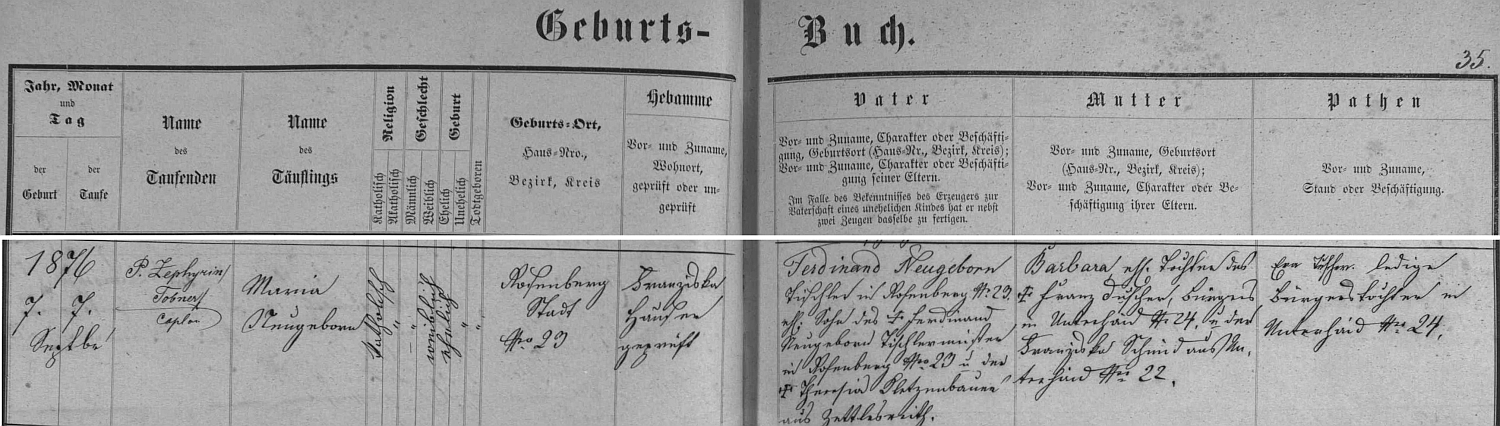 Geburts-Buch.
35.
Jahr, Monat
und
Tag
der
Geburt
der
Taufe
Name
des
Taufenden
Name
des
Täuflings
Religion
Katholisch
Akatholisch
Geschlecht
Männlich
Weiblich
Geburt
Ehelich
Unehelich
Todtgeboren
Geburts-Ort,
Haus-Nro.,
Bezirk, Kreis
Hebamme
Vor- und Zuname,
Wohnort,
geprüft oder un-
geprüft
Vater
Vor- und Zuname, Charakter oder Beschäfti-
gung, Geburtsort (Haus-Nr., Bezirk, Kreis);
Vor- und Zuname, Charakter oder Beschäfti-
gung seiner Eltern.
Im Falle des Bekenntnisses des Erzeugers zur
Vaterschaft eines unehelichen Kindes hat er nebst
zwei Zeugen dasselbe zu fertigen.
Mutter
Vor- und Zuname, Geburtsort
(Haus-Nr., Bezirk, Kreis);
Vor- und Zuname, Charakter oder Be-
schäftigung ihrer Eltern.
Pathen
Vor- und Zuname,
Stand oder Beschäftigung.
1876
7. 7.
Septbr
P. Zephyrin
Tobner
Caplan
Maria
Neugeborn
katholisch
"
"
weiblich
ehelich
"
"
Rosenberg
Stadt
Nro 23
Franziska
Hauser
geprüft
Ferdinand Neugeborn
Tischler in Rosenberg N. 23.
eh. Sohn des † Ferdinand
Neugeborn Tischlermeister
in Rosenberg Nro 23 u. der
† Theresia Kletzenbauer
aus Zettlesreith.
Barbara, eh. Tochter des
† Franz Tuscher, Bürgers
in Unterhaid N. 24, u. der
Franziska Schmid aus Un-
terhaid Nro 22.
Eva Tuscher, ledige
Bürgerstochter in
Unterhaid Nro 24.